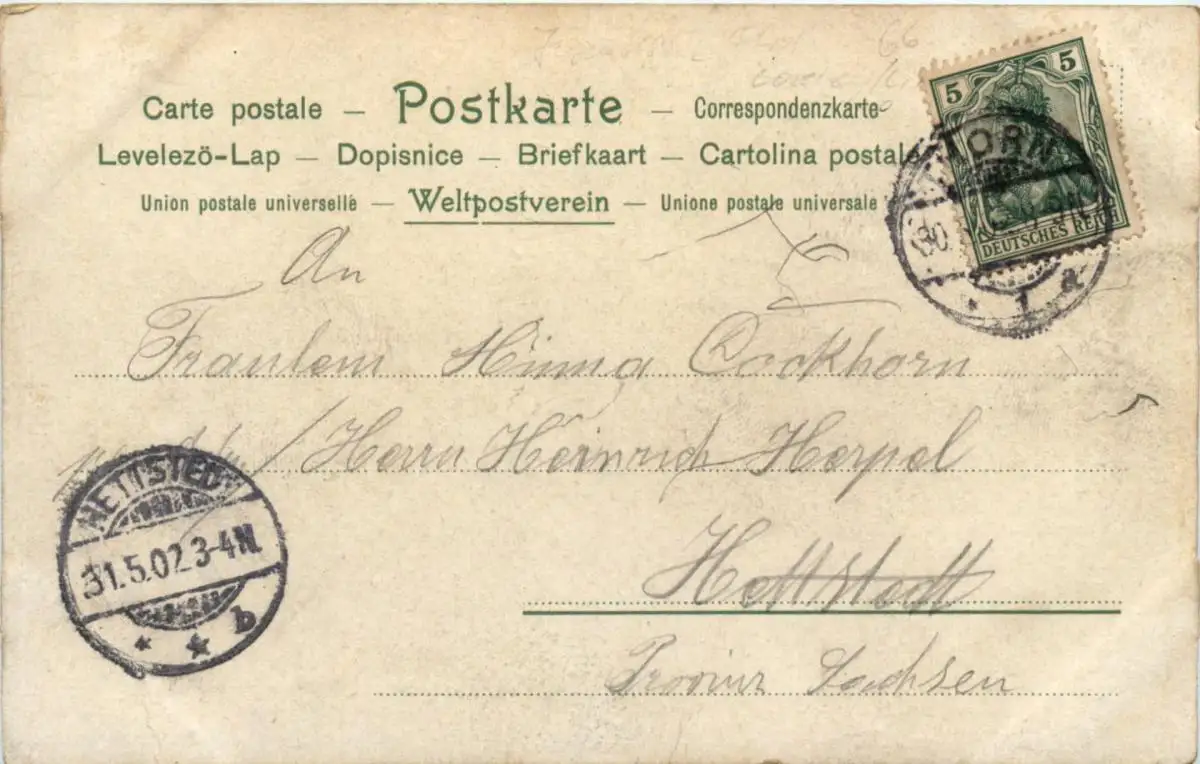 Carte postale – Postkarte – Correspondenzkarte
Levelezö-Lap – Dopisnice – Briefkaart – Cartolina postale
Union postale universelle – Weltpostverein – Unione postale universale
5 5
DEUTSCHES REICH
THORN
30.
1 a
An
Fräulein Minna Cockhorn
/ Herrn Heinrich Herpel
Hettstedt
Provinz Sachsen
HETTSTEDT
31.5.02.3-4N.
b